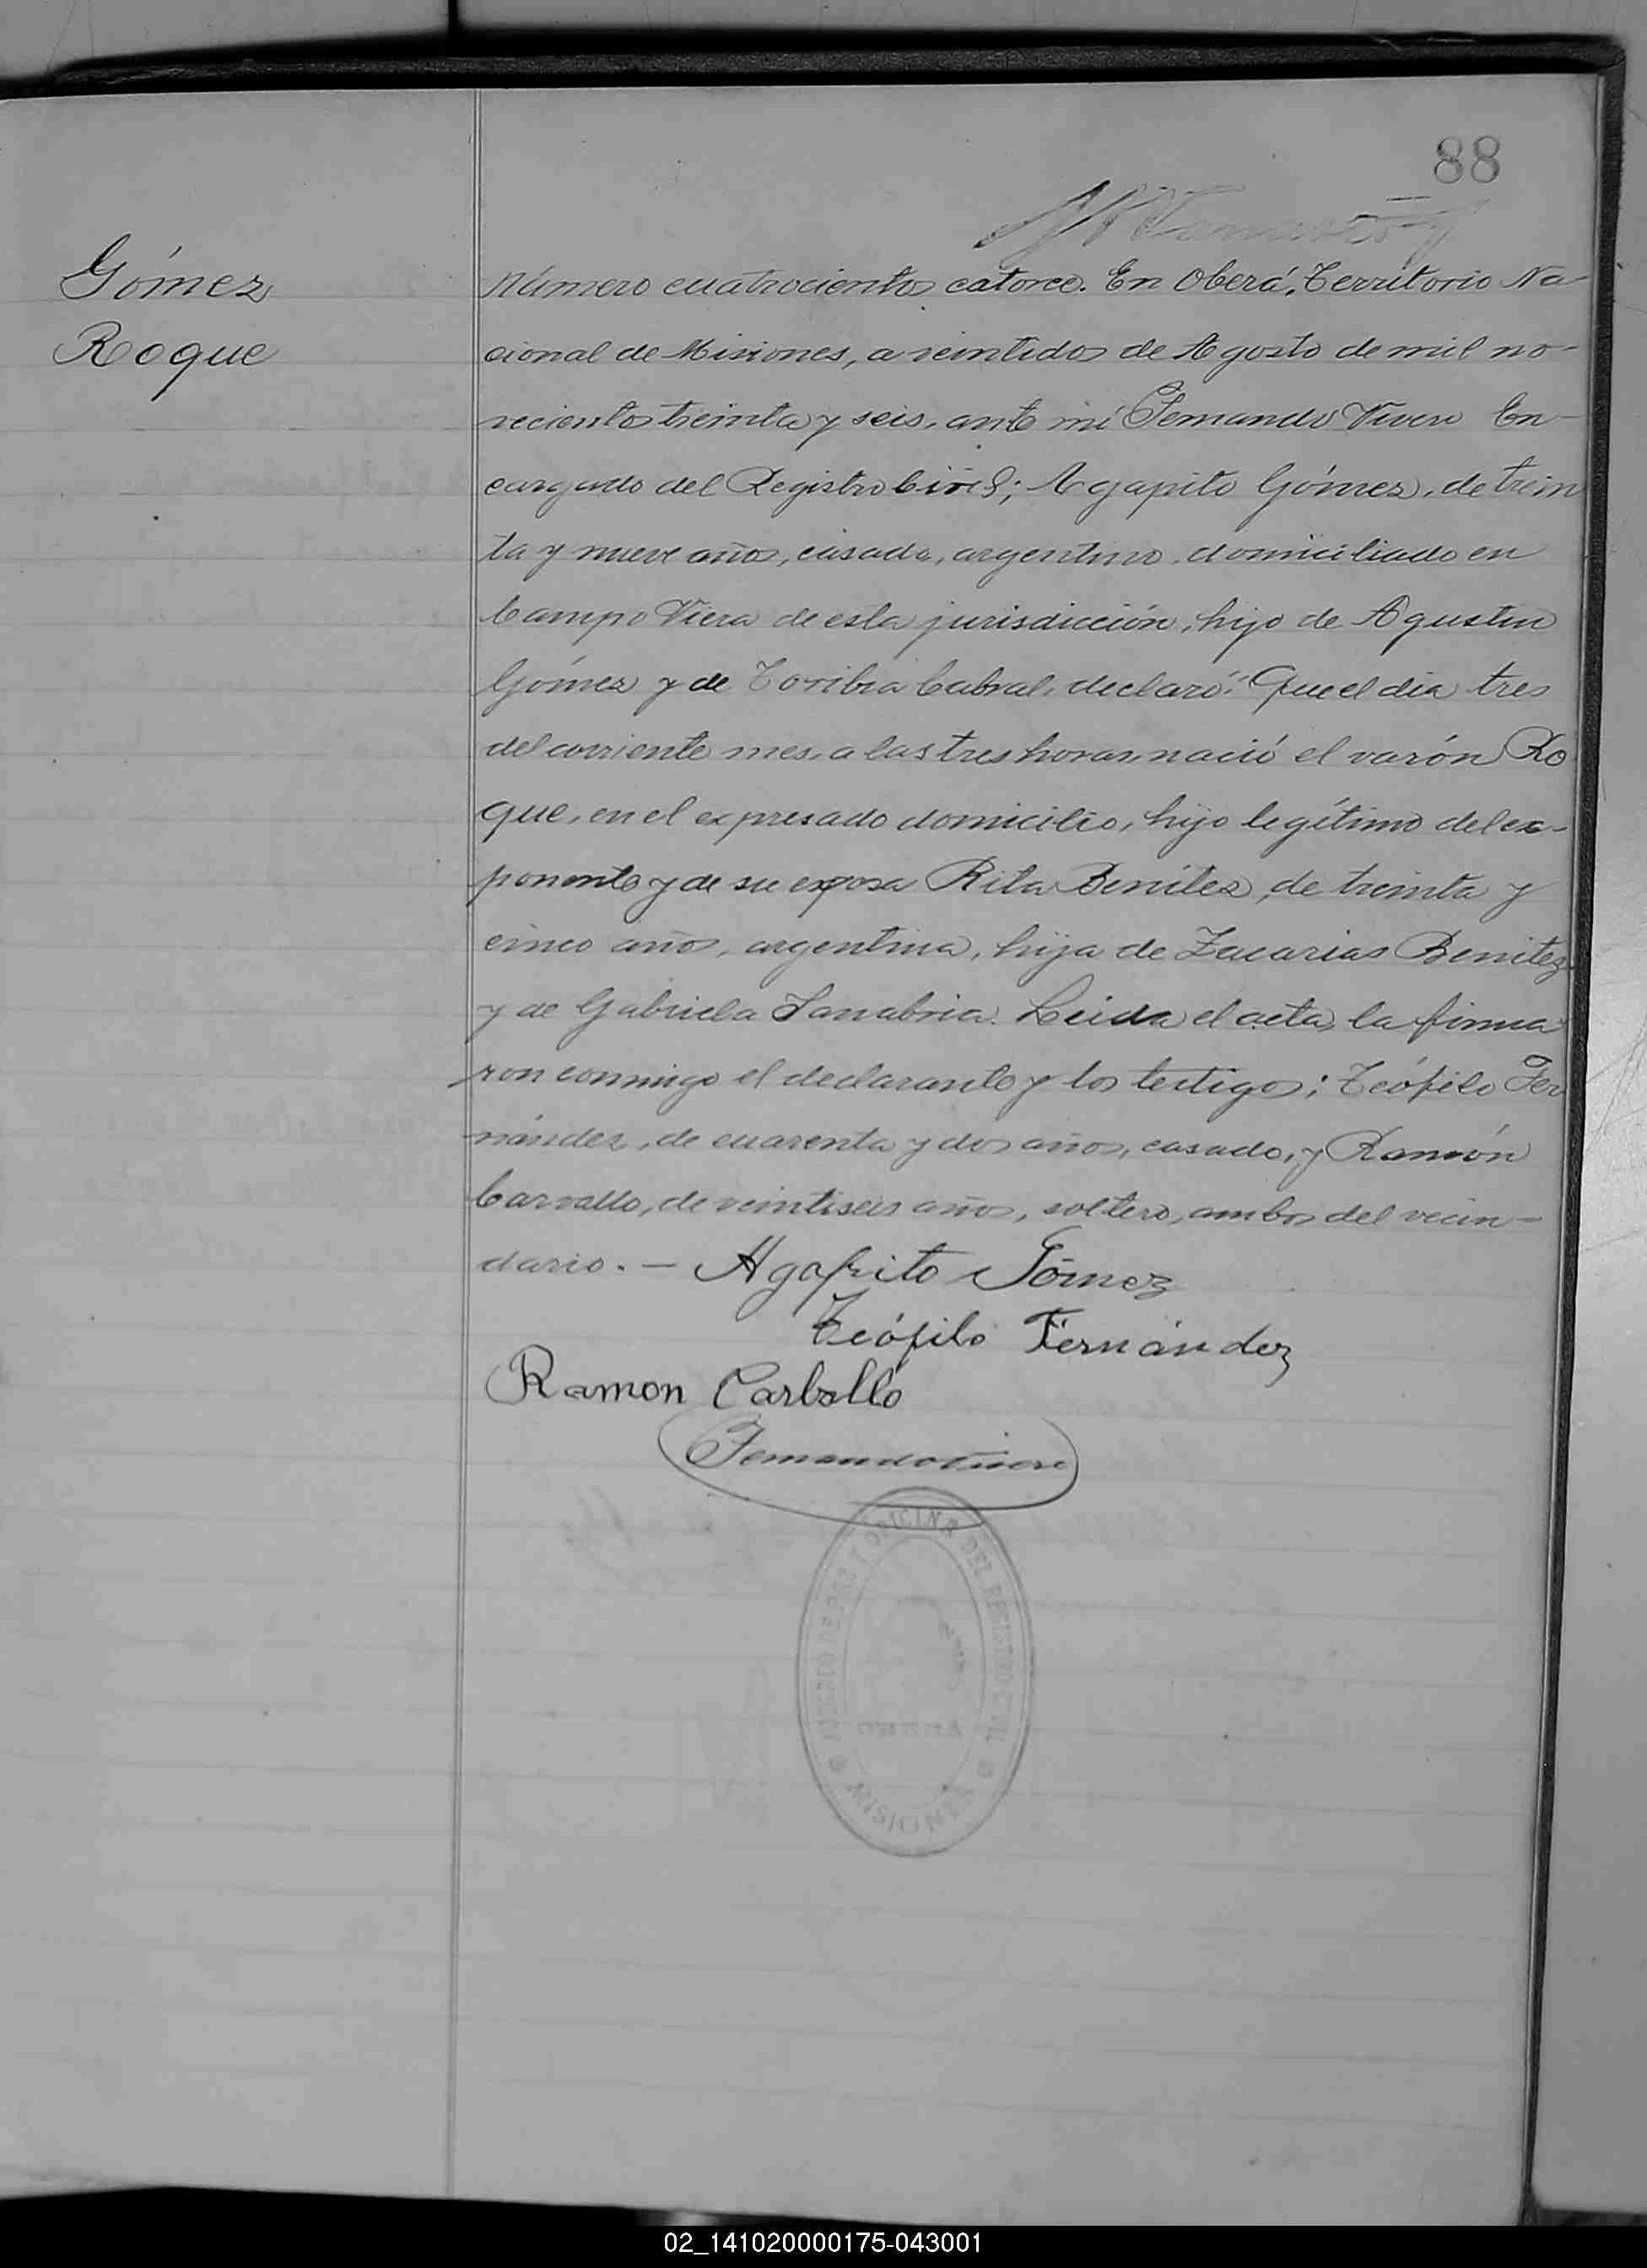 88
Gómez
Roque
Número cuatrocientos catorce. En Oberá, Territorio Na-
cional de Misiones, a veintidos de Agosto de mil no-
vecientos treinta y seis, ante mí Fernando Vivero En-
cargado del Registro Civil; Agapito Gómez, de trein
ta y nueve años, casado, argentino, domiciliado en
Campo Viera de esta jurisdicción, hijo de Agustin
Gómez y de Toribia Cabral, declaró: Que el día tres
del corriente mes, a las tres horas, nació el varón Ro
que, en el expresado domicilio, hijo legítimo del ex-
ponente y de su esposa Rita Benítez, de treinta y
cinco años, argentina, hija de Zacarias Benitez
y de Gabriela Sanabria. Leida el acta, la firma
ron conmigo el declarante y los testigos; Teófilo Fer
nández, de cuarenta y dos años, casado, y Ramón
Carvallo, de veintiseis años, soltero, ambos del vecin-
dario. — Agapito Gómez
Teófilo Fernández
Ramon Carballo
Fernando Vivero
JUZGADO DE PAZ Y OFICINA DEL REGISTRO CIVIL
OBERA
MISIONES
02_141020000175-043001